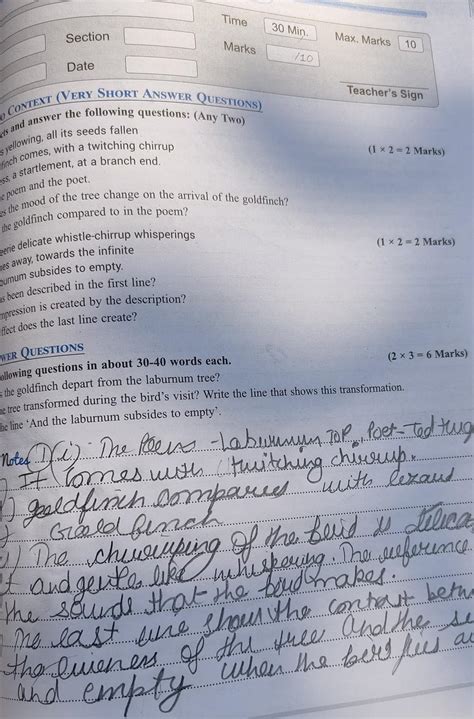 Time 30 Min. Max. Marks 10
Section
Marks /10
Date
Teacher's Sign
CONTEXT (VERY SHORT ANSWER QUESTIONS)
and answer the following questions: (Any Two)
yellowing, all its seeds fallen (1 × 2 = 2 Marks)
comes, with a twitching chirrup
a startlement, at a branch end.
poem and the poet.
the mood of the tree change on the arrival of the goldfinch?
the goldfinch compared to in the poem?
delicate whistle-chirrup whisperings (1 × 2 = 2 Marks)
away, towards the infinite
subsides to empty.
been described in the first line?
is created by the description?
does the last line create?
QUESTIONS
following questions in about 30-40 words each. (2 × 3 = 6 Marks)
the goldfinch depart from the laburnum tree?
tree transformed during the bird's visit? Write the line that shows this transformation.
line 'And the laburnum subsides to empty'.
Notes (i) The Poem - Laburnum Top, Poet - Ted
It comes with twitching chirrup.
goldfinch compares with lezard
Goold finch
The chirruping of the berd is
and gentle like whispering. The reference
the sounds that the berd makes.
The last line shows the
the liveness of the tree and the
and empty when the berd flies